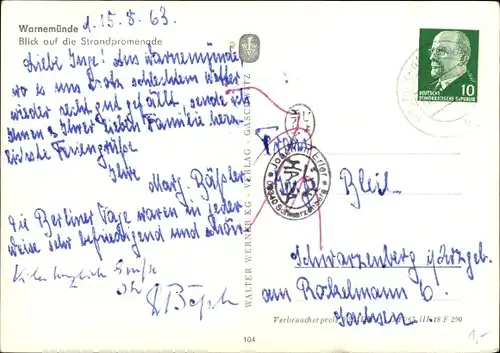 Warnemünde
Blick auf die Strandpromenade
1.15.8.63.
Liebe Inge! Aus Warnemünde,
wo es uns trotz schlechtem Wetter
wieder recht gut gefällt, sende ich
Ihnen & Ihrer lieben Familie herz-
lichste Feriengrüße
Ihre
Marg.
Die Berliner Tage waren in jeder
weise sehr befriedigend und schön
herzliche Grüße
Ihr
WALTER WERNER KG · VERLAG · GASCHWITZ
104
10
DEUTSCHE
DEMOKRATISCHE REPUBLIK
Joachim Erler
Schwarzenberg
Schwarzenberg i/Erzgeb.
am Rockelmann 6
Sachsen
Verbraucherpreis
III 18 F 290
1,-